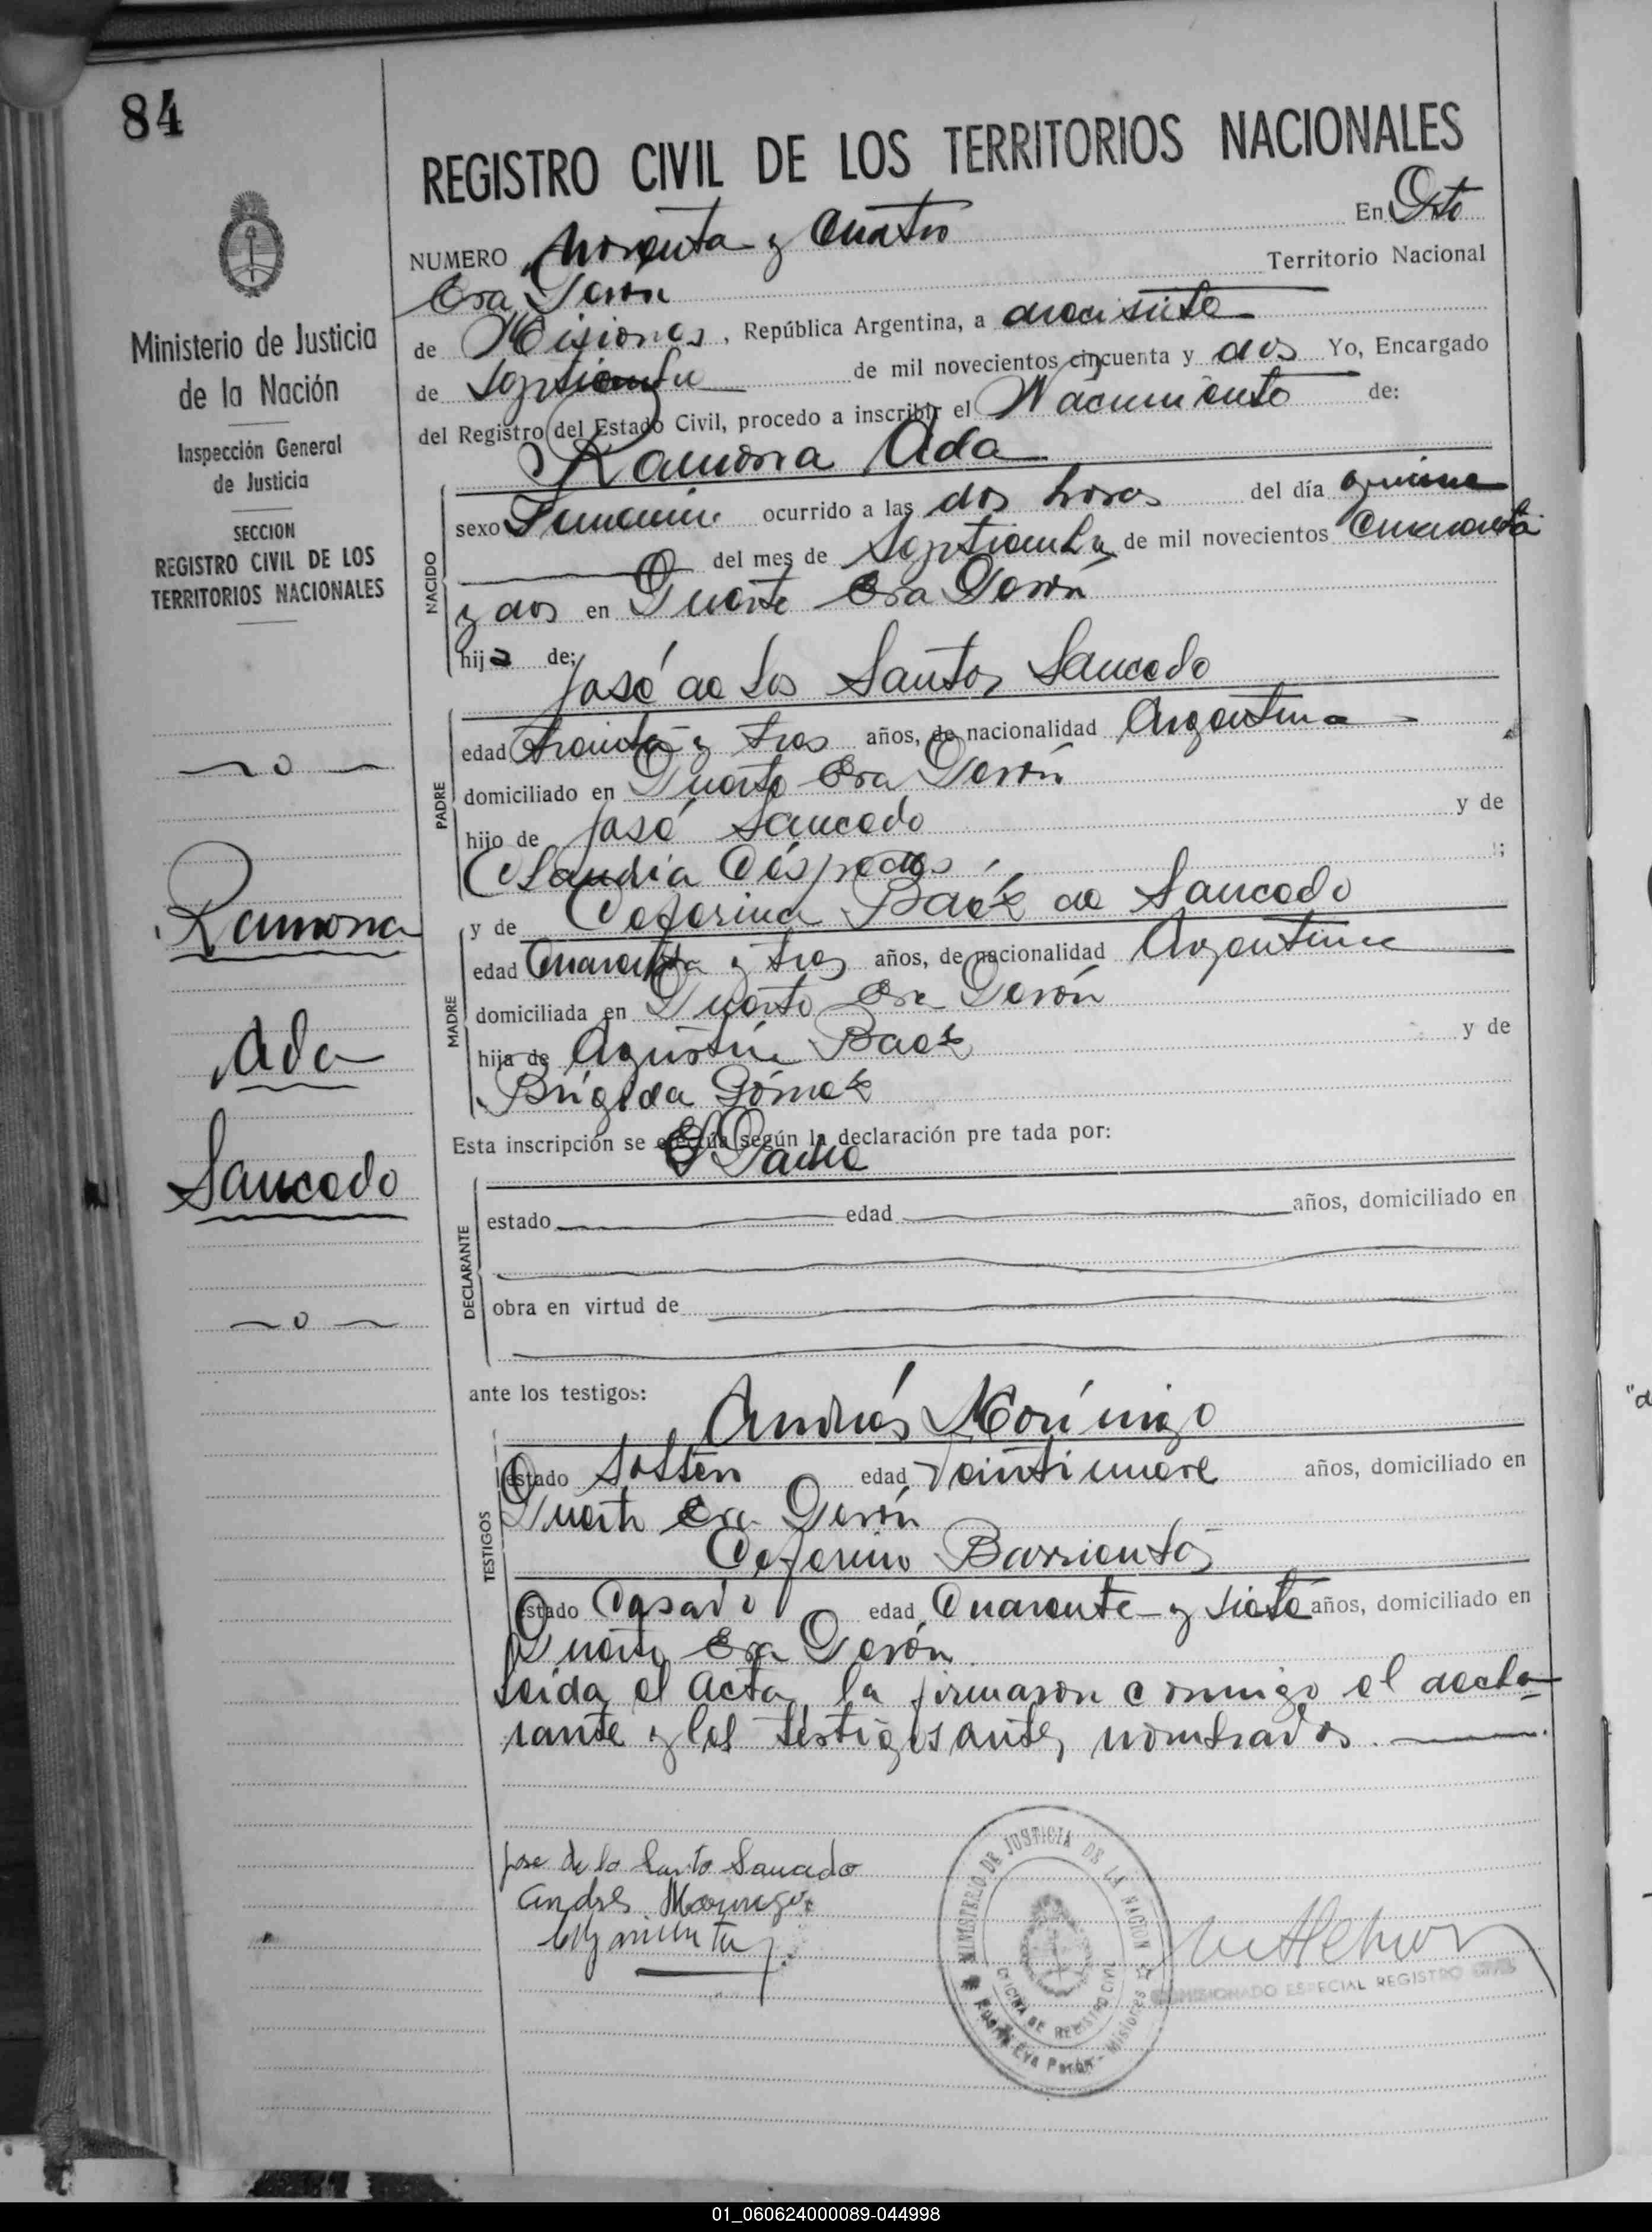 84
REGISTRO CIVIL DE LOS TERRITORIOS NACIONALES
NUMERO Noventa y Cuatro En Pto
Eva Perón Territorio Nacional
de Misiones, República Argentina, a diecisiete
de Septiembre de mil novecientos cincuenta y dos Yo, Encargado
del Registro del Estado Civil, procedo a inscribir el Nacimiento de:
Ramona Ada
NACIDO
sexo Femenino ocurrido a las dos horas del día quince
del mes de Septiembre de mil novecientos Cincuenta
y dos en Puerto Eva Perón
hija de:
José de los Santos Saucedo
PADRE
edad treinta y tres años, de nacionalidad Argentina
domiciliado en Puerto Eva Perón
hijo de José Saucedo y de
Claudia Céspedes ;
y de Ceferina Baéz de Saucedo
MADRE
edad Cuarenta y tres años, de nacionalidad Argentina
domiciliada en Puerto Eva Perón
hija de Agustín Baez y de
Brígida Gómez
Esta inscripción se efectúa según la declaración pre tada por:
El Padre
DECLARANTE
estado edad años, domiciliado en
obra en virtud de
ante los testigos:
Andrés Morínigo
TESTIGOS
estado Soltero edad Veintinueve años, domiciliado en
Puerto Eva Perón
Ceferino Barrientos
estado Casado edad Cuarenta y siete años, domiciliado en
Puerto Eva Perón
Leida el acta, la firmaron conmigo el decla-
rante y los testigos antes nombrados.
Jose de lo Santo Saucedo
Andres Morinigo
MINISTERIO DE JUSTICIA DE LA NACION
OFICINA DE REGISTRO CIVIL
Puerto Eva Perón - Misiones
COMISIONADO ESPECIAL REGISTRO CIVIL
Ministerio de Justicia
de la Nación
Inspección General
de Justicia
SECCION
REGISTRO CIVIL DE LOS
TERRITORIOS NACIONALES
Ramona
Ada
Saucedo
01_060624000089-044998